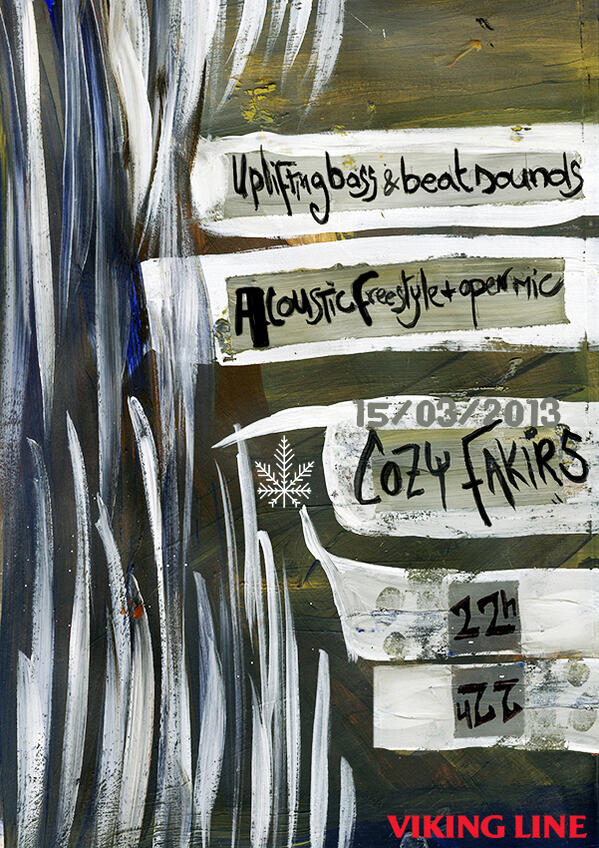 Uplifting bass & beat sounds
Acoustic freestyle + open mic
15/03/2013
COZY FAKIRS
22h
22h
VIKING LINE